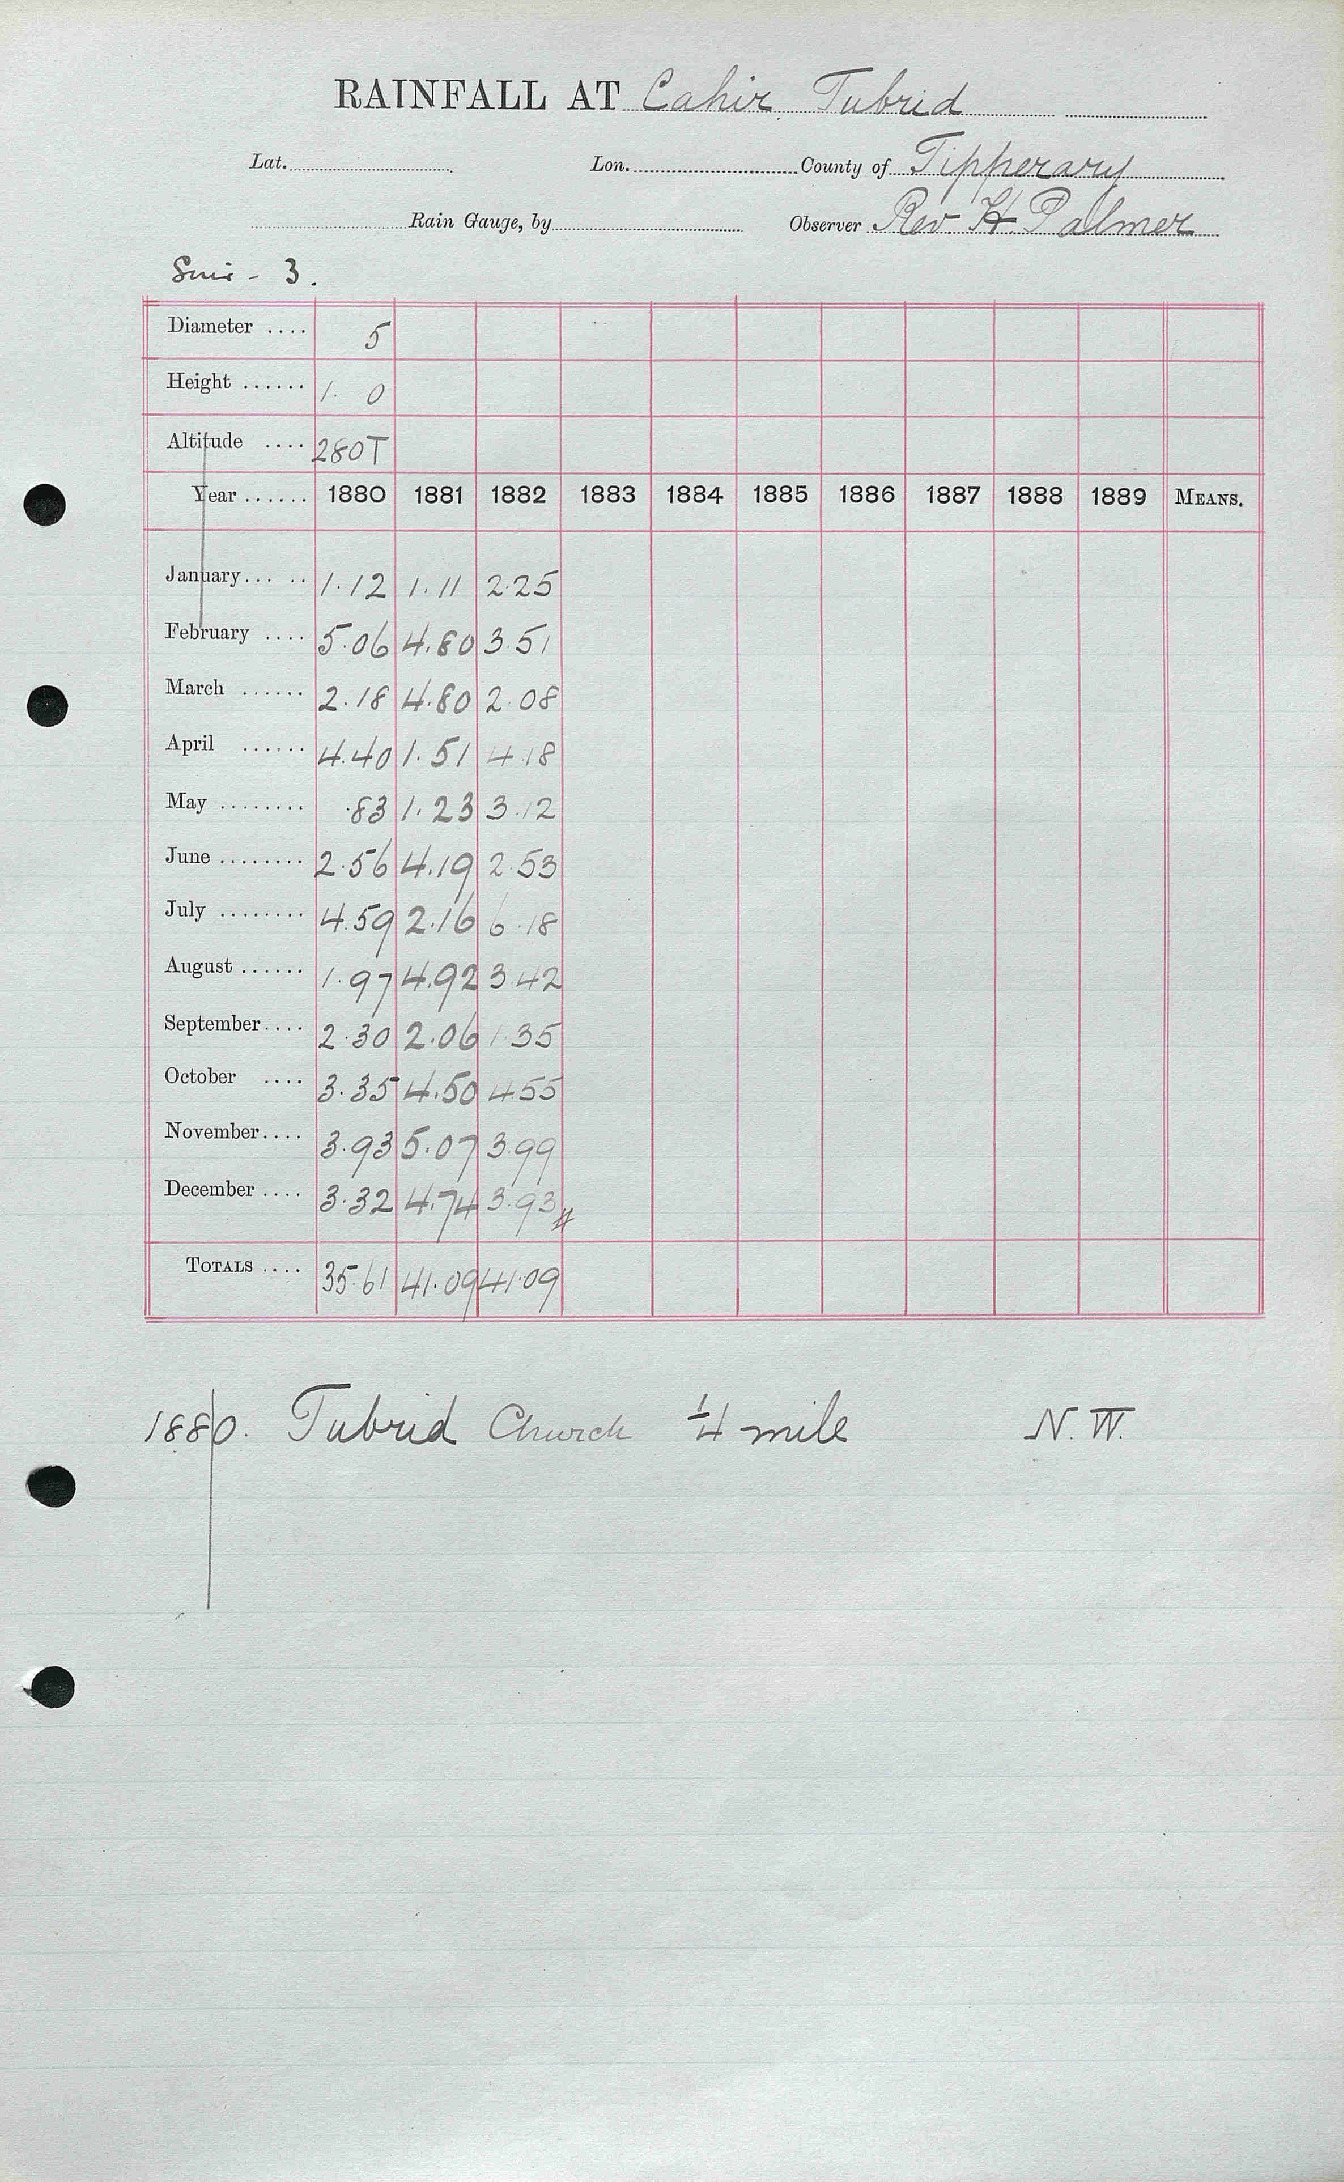 RAINFALL AT Cahir, Tubrid
Lat. Lon. County of Tipperary
Rain Gauge, by Observer Rev H. Palmer
3.
Diameter .... 5
Height ...... 1. 0
Altitude .... 280T
Year ...... 1880 1881 1882 1883 1884 1885 1886 1887 1888 1889 MEANS.
January... .. 1.12 1.11 2.25
February .... 5.06 4.80 3.51
March ...... 2.18 4.80 2.08
April ...... 4.40 1.51 4.18
May ........ .83 1.23 3.12
June ........ 2.56 4.19 2.53
July ........ 4.59 2.16 6.18
August ...... 1.97 4.92 3.42
September.... 2.30 2.06 1.35
October .... 3.35 4.50 4.55
November.... 3.93 5.07 3.99
December .... 3.32 4.74 3.93
TOTALS .... 35.61 41.09 41.09
1880. Tubrid Church ¼ mile N.W.